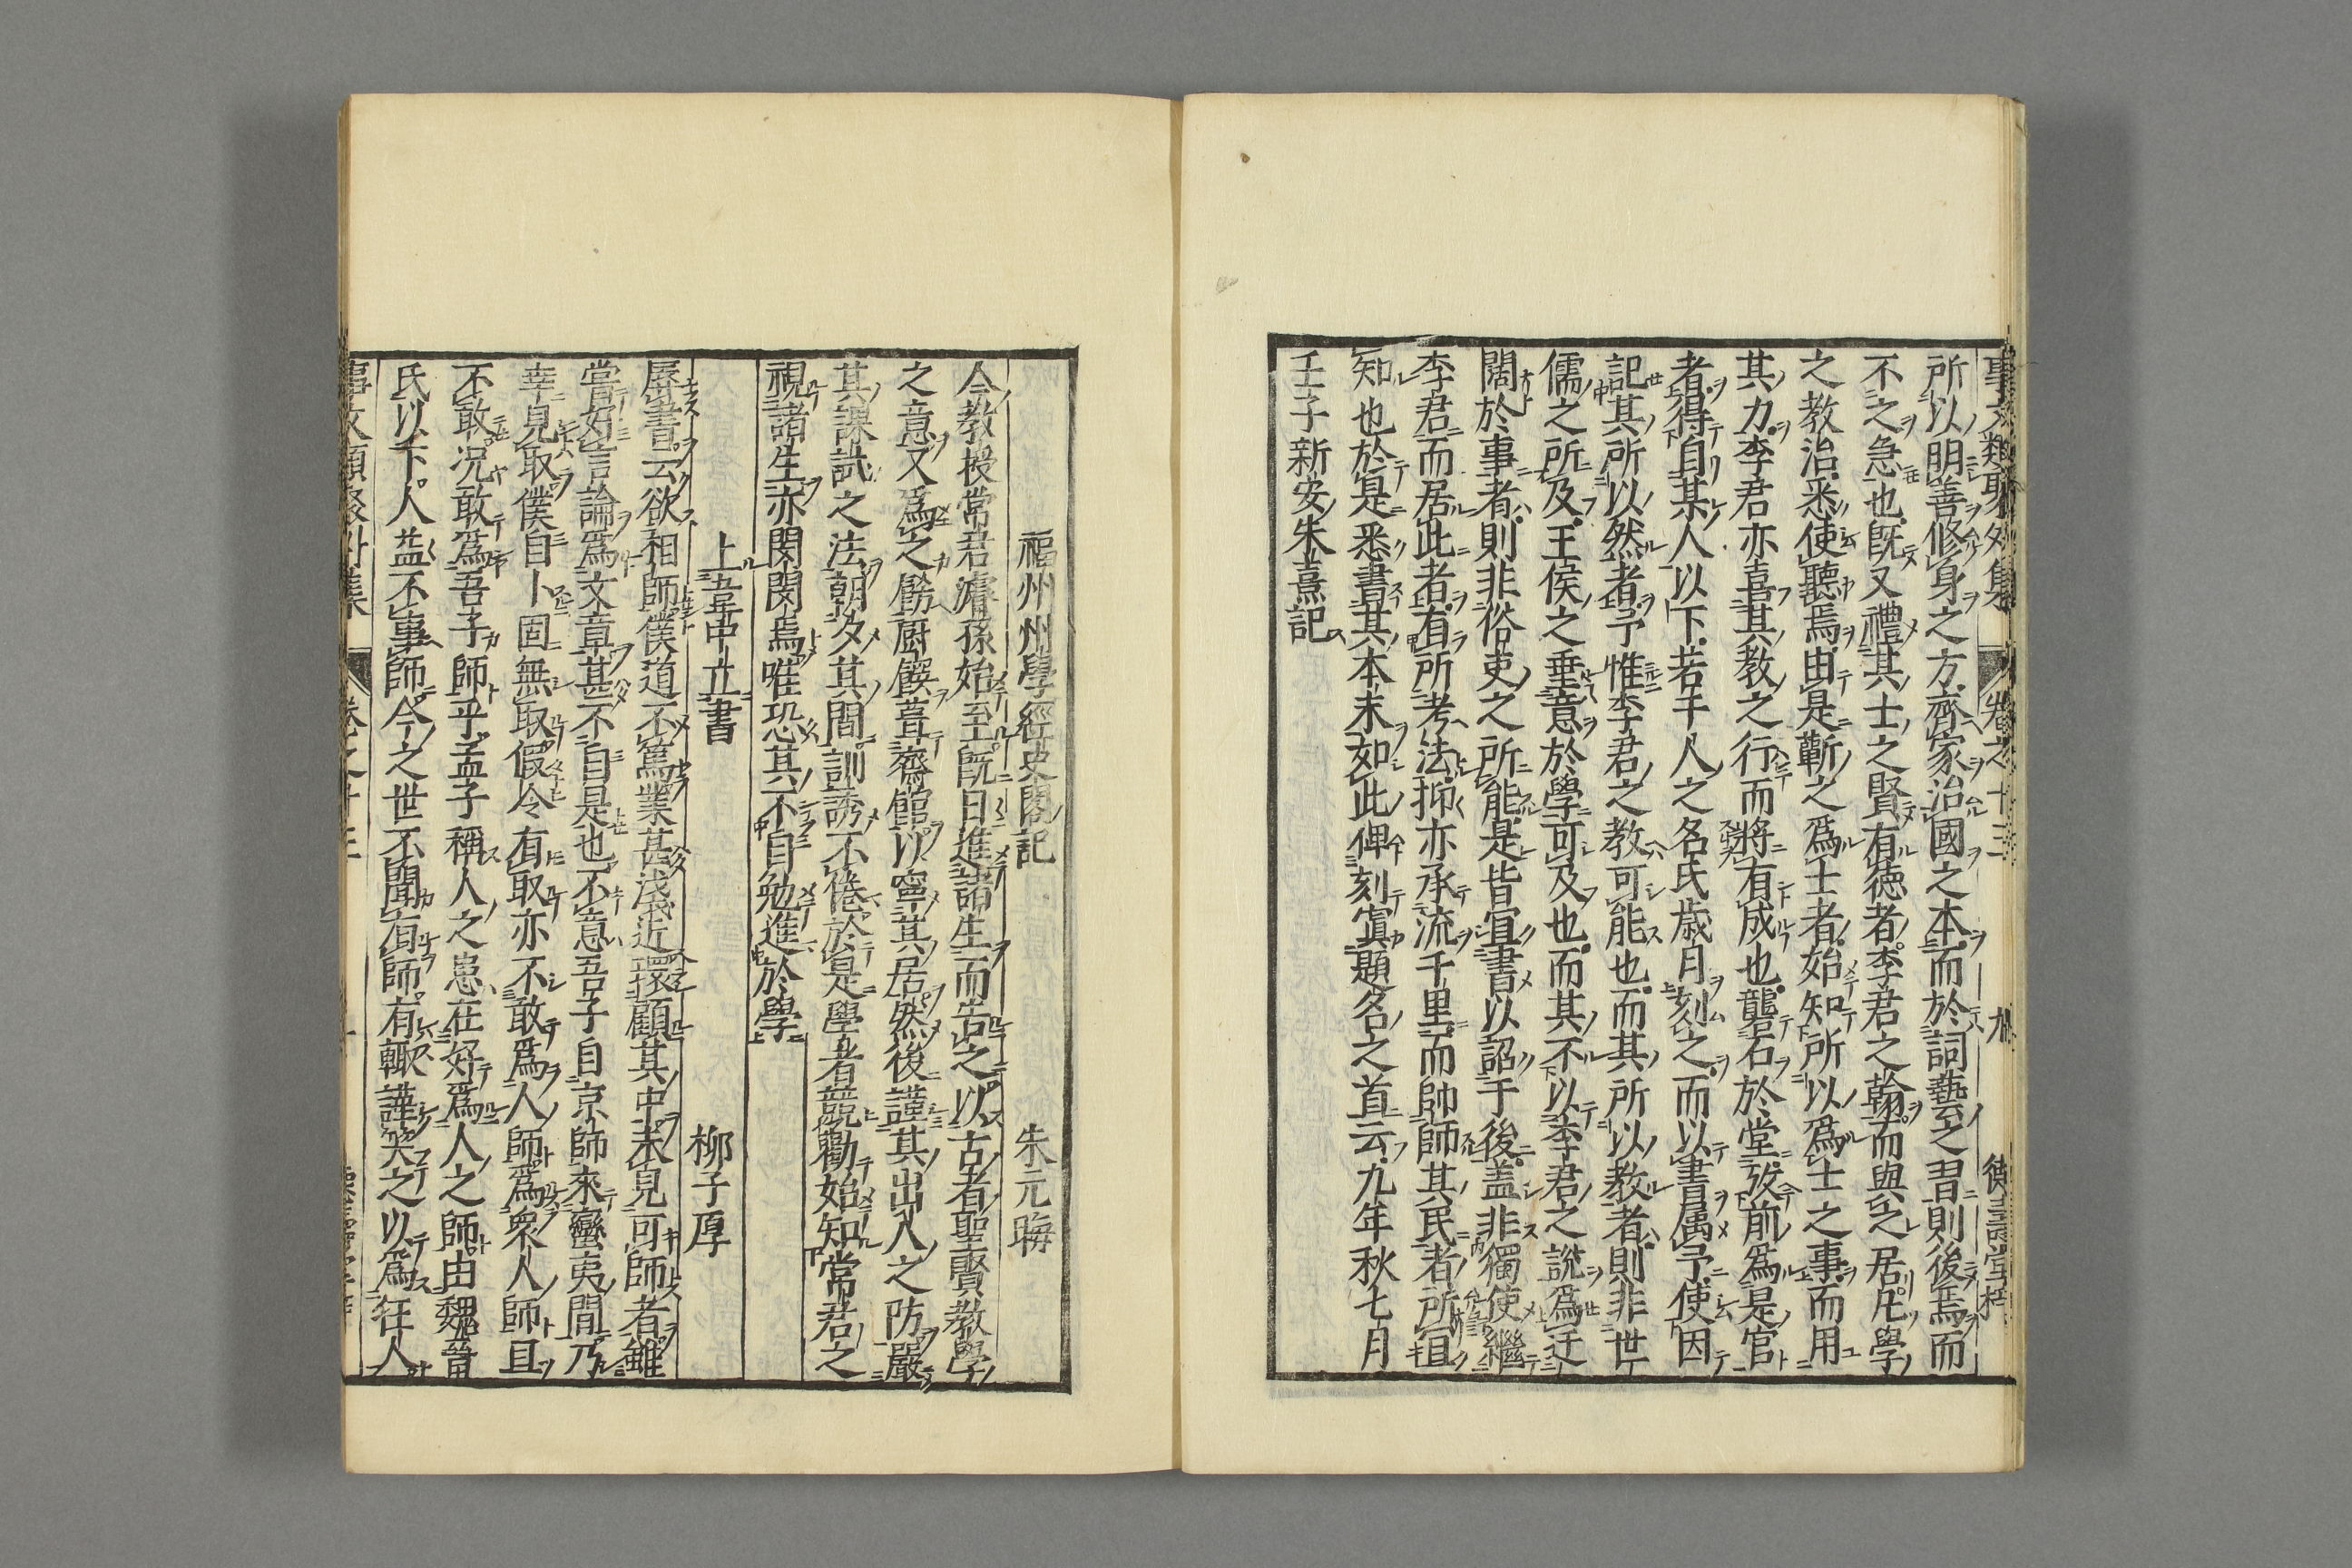 事文類聚外集 卷之十三 九 德壽堂梓
所以明善修身之方齊家治國之本而於詞藝之習則後焉而
不之急也既又禮其士之賢有德者李君之翰而與之居凡學
之教治悉使聽焉由是蘄之爲士者始知所以爲士之事而用
其力李君亦喜其教之行而將有成也礱石於堂攷前爲是官
者得自某人以下若干人之名氏歲月刻之而以書屬予使因
記其所以然者予惟李君之教可能也而其所以教者則非世
儒之所及王侯之垂意於學可及也而其不以李君之說爲迂
闊於事者則非俗吏之所能是皆宜書以詔于後蓋非獨使繼
李君而居此者有所考法抑亦承流千里而帥師其民者所宜
知也於是悉書其本末如此俾刻寘題名之首云九年秋七月
壬子新安朱熹記
福州州學經史閣記 朱元晦
今教授常君濬孫始至既日進諸生而告之以古者聖賢教學
之意又爲之飭厨饌葺齋館以寧其居然後謹其出入之防嚴
其課試之法朝夕其間訓誘不倦於是學者競勸始知常君之
視諸生亦閔閔焉唯恐其不自勉進於學
上韋中立書 柳子厚
辱書云欲相師僕道不篤業甚淺近環顧其中未見可師者雖
嘗好言論爲文章甚不自是也不意吾子自京師來蠻夷間乃
幸見取僕自卜固無取假令有取亦不敢爲人師爲衆人師且
不敢况敢爲吾子師乎孟子稱人之患在好爲人之師由魏晉
氏以下人益不事師今之世不聞有師有輒譁笑之以爲狂人